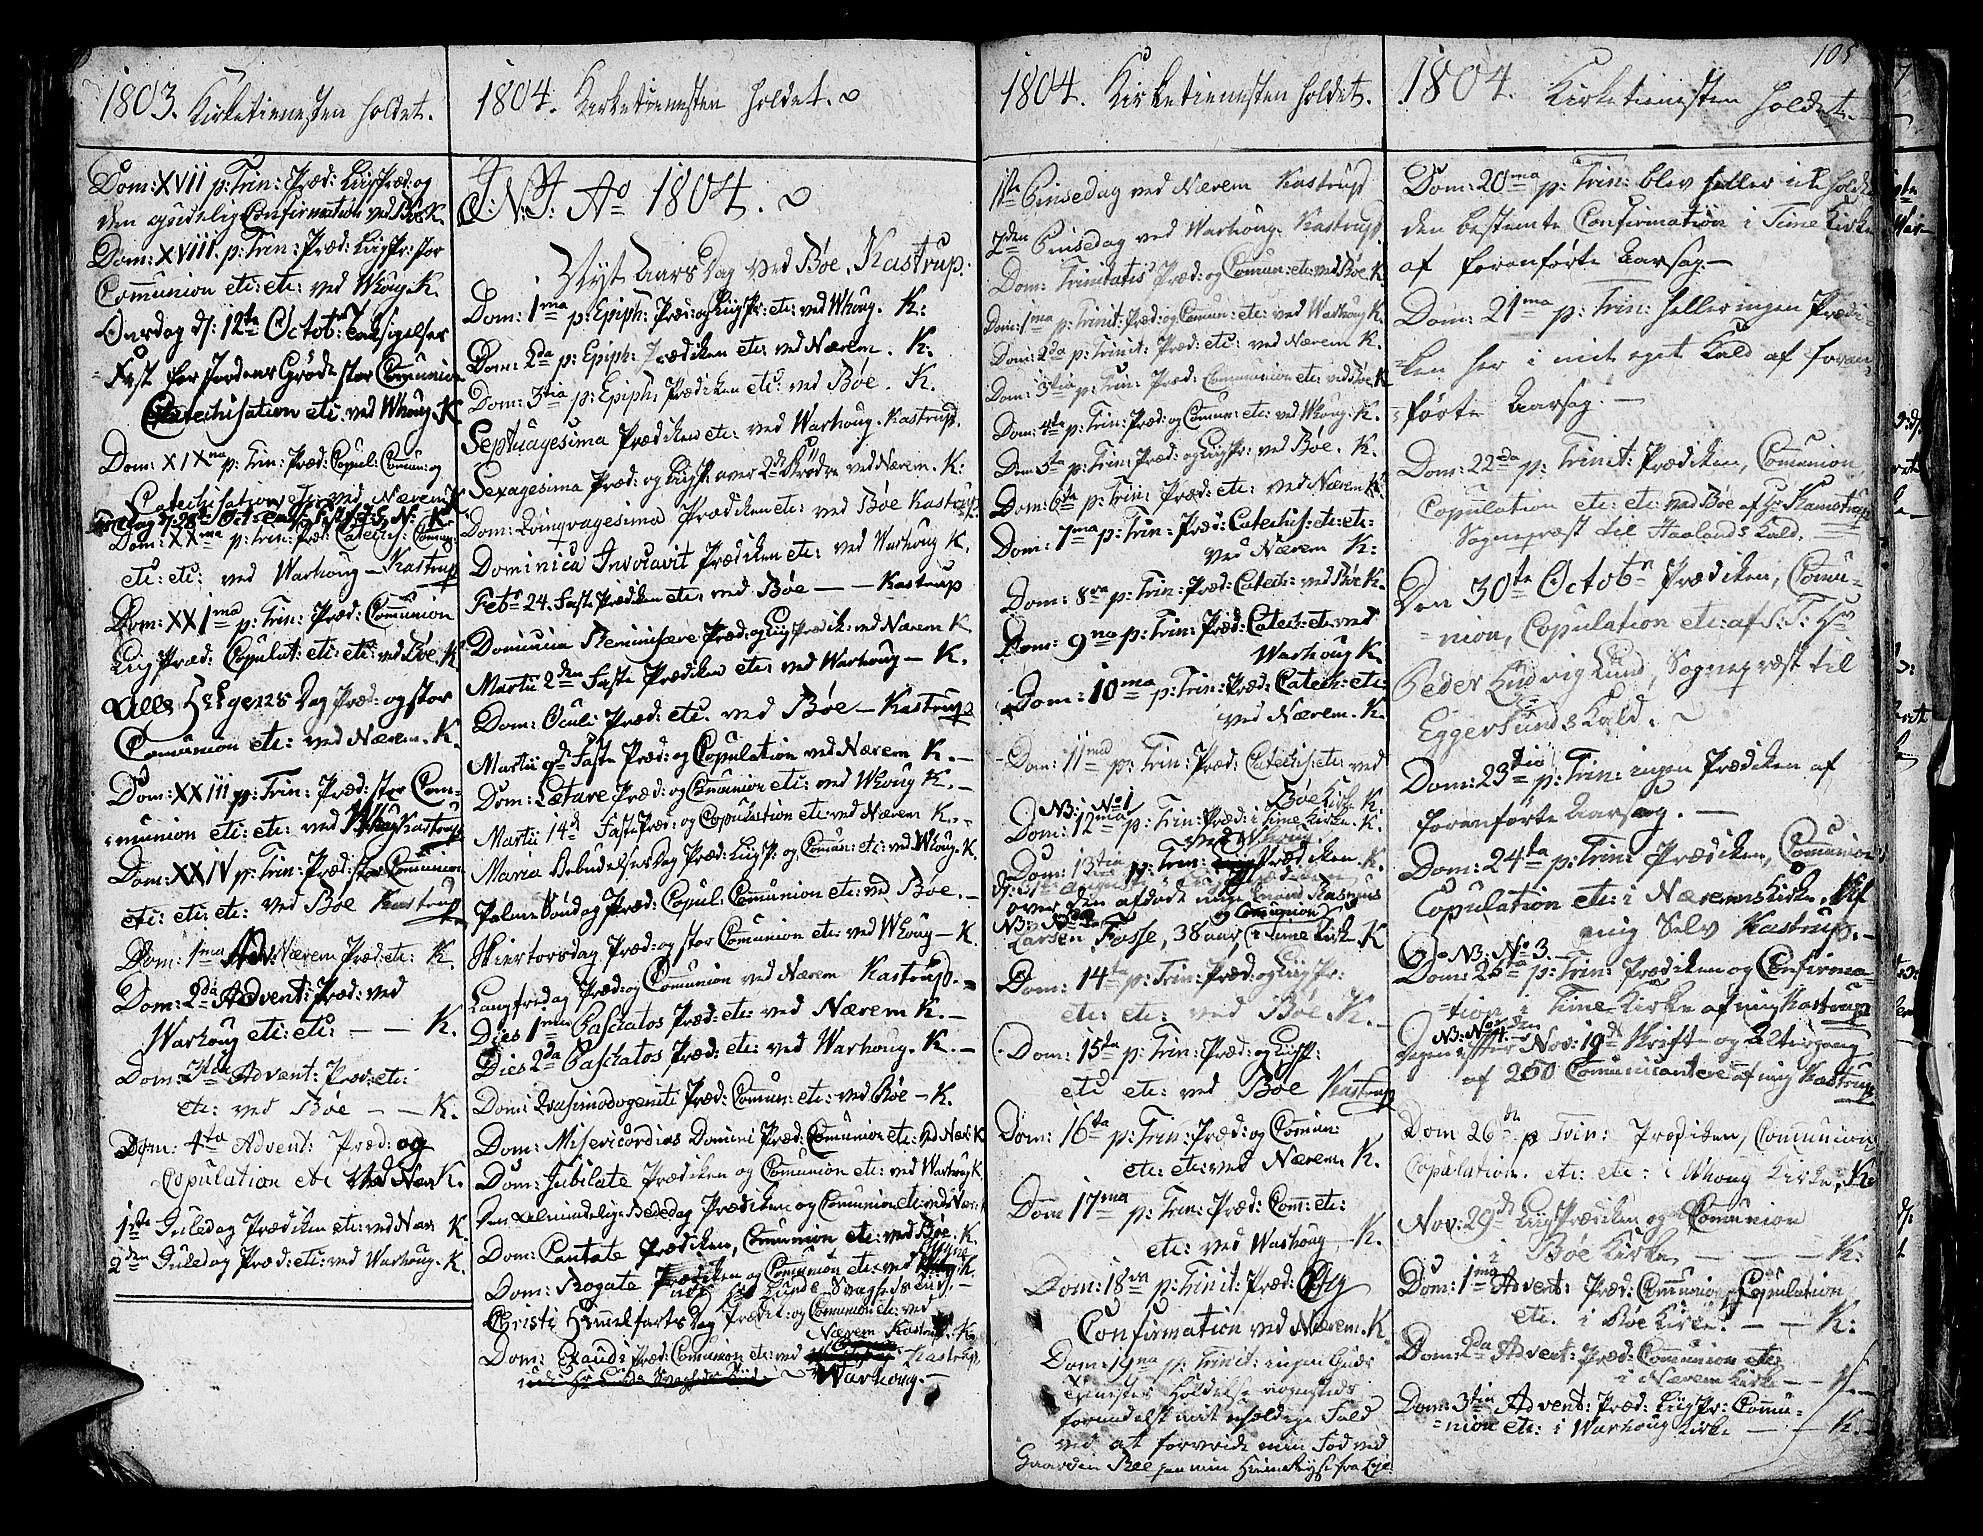 1803. Kirketienesten holdet.
Dom: XVII p: Trin: Præd: Liigpræd: og
den gudelig Confirmation ved Bøe K.
Dom: XVIII. p: Trin: Præd: Liigpr: stor
Communion etc: etc: ved Whoug. K.
Onsdag d: 12te Octobr Taksigelses
Fest for Jordens Grøde stor Comunion
Catechisation etc. ved Whoug. K
Dom: XIXna p: Trin: Præd: Copul: Comun: og
Catechisation etc: ved Nærem
Dom: XXma p: Trin: Præd: Catechis: Comun:
etc: etc: ved Warhoug — Kastrup
Dom: XX1ma p: Trin: Præd: Communion
Liig Præd: Copulat: etc: etc: ved Bøe K
Alle Helgens Dag Præd: og stor
Comunion etc: ved Nærem. K.
Dom: XXIII p: Trin: Præd: stor Com-
munion etc: etc: ved Whoug Kastrup
Dom: XXIV p: Trin: Præd: stor Communion
etc: etc: etc: ved Bøe Kastrup
Dom: 1ma Adv: Nærem Præd: etc: K.
Dom: 2da Advent: Præd: ved
Warhoug etc: etc: — — K.
Dom: 3tia Advent: Præd: etc:
etc: ved Bøe — — K.
Dom: 4ta Advent: Præd: og
Copulation etc ved Nær K.
1ste Juledag Prædiken etc: ved Nær: K
2den Juledag Præd: etc: ved Warhoug. K.
1804. Kirketienesten holdet.
J: N: J: Ao 1804.
Nyt Aars Dag ved Bøe. Kastrup.
Dom: 1ma p: Epiph: Præd: og Liigpr: etc: ved Whoug. K:
Dom: 2da p: Epiph: Prædiken etc: ved Nærem. K:
Dom: 3tia p: Epiph: Prædiken etc: ved Bøe. K.
Septuagesima Prædiken etc: ved Warhoug. Kastrup.
Sexagesima Præd: og Liigpr. over 2de Brødre ved Nærem. K:
Dom: Qvinqvagesima Prædiken etc: ved Bøe Kastrup
Dominica Invocavit Prædiken etc: ved Warhoug K.
Febr 24. Faste Prædiken etc: ved Bøe — — Kastrup
Dominica Reminiscere Præd: og Liig Prædik: ved Nærem K.
Martii 2den Faste Prædiken etc: ved Warhoug — K.
Dom: Oculi Præd: etc. ved Bøe — Kastrup
Martii 9de Faste Præd: og Copulation ved Nærem K.—
Dom: Lætare Præd: og Communion etc: ved Whoug K.—
Martii 14d Faste Præd: og Copulation etc ved Nærem K.—
Maria Bebudelses Dag Præd: Liigpr: og Comun: etc: ved Whoug. K.
Palme Søndag Præd: Copul: Communion etc: ved Bøe.—
Skiertorsdag Præd: og stor Communion etc: ved Whoug — K.
Langfredag Præd: og Communion ved Nærem Kastrup.
Dies 1ma Paschatos Præd: etc: ved Nærem K.—
Dies 2da Paschatos Præd: etc: ved Warhoug. K.—
Dom: Qvasimodogeniti Præd: Comun: etc: ved Bøe — K.
Dom: Misericordias Domini Præd: Comunion etc: ved Nær: K
Dom: Jubilate Prædiken og Communion etc: ved Warhoug K.
Den Almindelige Bededag Prædiken og Comunion etc: ved Nær:
Dom: Cantate Prædiken, Comunion etc: ved Bøe. K.
Dom: Rogate Prædiken og Comunion etc: ved K.
Christi Himmelfarts Dag Prædik: og Communion etc: ved
Nærem Kastrup. K.
Dom: Exaudi Præd: Comunion etc: ved Kastrup
Warhoug.—
1804. Kirketienesten holdet.
1ste Pinsedag ved Nærem Kastrup
2den Pinsedag ved Warhoug. Kastrup.
Dom: Trinitatis Præd: og Comun: etc: ved Bøe K.
Dom: 1ma p: Trinit: Præd: og Comun: etc: ved Warhoug K.
Dom: 2da p: Trinit: Præd: etc: ved Nærem K.
Dom: 3tia p: Trin: Præd: Communion etc: ved Bøe K
Dom: 4ta p: Trin: Præd: og Comun: etc: ved Whoug. K.
Dom 5ta p: Trin: Præd: og Liigpr: ved Bøe. K.
Dom: 6ta p: Trin: Præd: etc: ved Nærem K.
Dom: 7ma p: Trin: Præd: Catechis: etc: etc:
ved Nærem K:
Dom: 8va p: Trin: Præd: Catech: ved Bøe K.
Dom: 9na p: Trin: Præd: Catech: etc: ved
Warhoug K.
Dom: 10ma p: Trin: Præd: Catech: etc:
ved Nærem. K.
Dom: 11ma p: Trin: Præd: Catechis: etc: ved
Bøe Kirke K.
NB: No 1
Dom: 12ma p: Trin: Præd: i Time Kirke. K.
ved Whoug
Dom: 13tia p: Trin: Prædiken. K.
over den afdøde unge Mand Rasmus
NB: No 2 og Comunion
Larsen Fosse, 38 aar i Time Kirke K
Dom: 14ta p: Trin: Præd: og Liigpr:
etc: etc: ved Bøe. K.
Dom: 15ta p: Trin: Præd: og Liigpr:
etc etc: ved Bøe Kastrup
Dom: 16ta p: Trin: Præd: og Comun:
etc: etc: ved Nærem. K.
Dom 17ma p: Trin: Præd: Com: etc:
etc: ved Warhoug — K.
Dom: 18va p: Trinit: Præd: og
Confirmation ved Nærem. K
Dom: 19na p: Trinit: ingen Guds
Tienestes Holdelse
formedelst mit uheldige Fald
ved at forvride min Fod ved
Gaarden Bøe paa min Hiemreyse fra
105
1804. Kirketienesten holdet.
Dom: 20ma p: Trin: blev heller ikke holdt
den bestemte Confirmation i Time Kirke
af foranførte Aarsag.—
Dom: 21ma p: Trin: heller ingen Prædi-
ken her i mit eget Kald af foran-
førte Aarsag.—
Dom: 22da p: Trinit: Prædiken, Communion,
Copulation etc: etc: ved Bøe af Hr Kamstrup
Sognepræst til Haalands Kald.
Den 30te Octobr Prædiken, Comu-
nion, Copulation etc: af S: T: Hr
Peder Ludvig Lund, Sognepræst til
Eggersunds Kald.
Dom: 23tia p: Trin: ingen Prædiken af
foranførte Aarsag.—
Dom: 24ta p: Trin: Prædiken, Communion
Copulation etc: i Nærems Kirke, af
mig Selv Kastrup.—
NB: No 3.
Dom: 25ta p: Trin: Prædiken og Confirma-
tion i Time Kirke af mig Kastrup
NB: No 4.
Dagen efter den Nov: 19d Skrifte og Altergang
af 260 Comunicantere af mig Kastrup
Dom 26ta p Trin: Prædiken, Communion
Copulation. etc: etc: i Whoug Kirke, K:
Nov: 29d Liig Prædiken og Comunion
i Bøe Kirke, — — — K:
Dom: 1ma Advent: Præd: Communion Copulation
etc. i Bøe Kirke. — — K:
Dom: 2da Advent: Præd: Communion etc:
i Nærem Kirke — — K.—
Dom: 3tia Advent: Præd: Liigpr: Comu-
nion etc: i Warhoug Kirke — — K.—